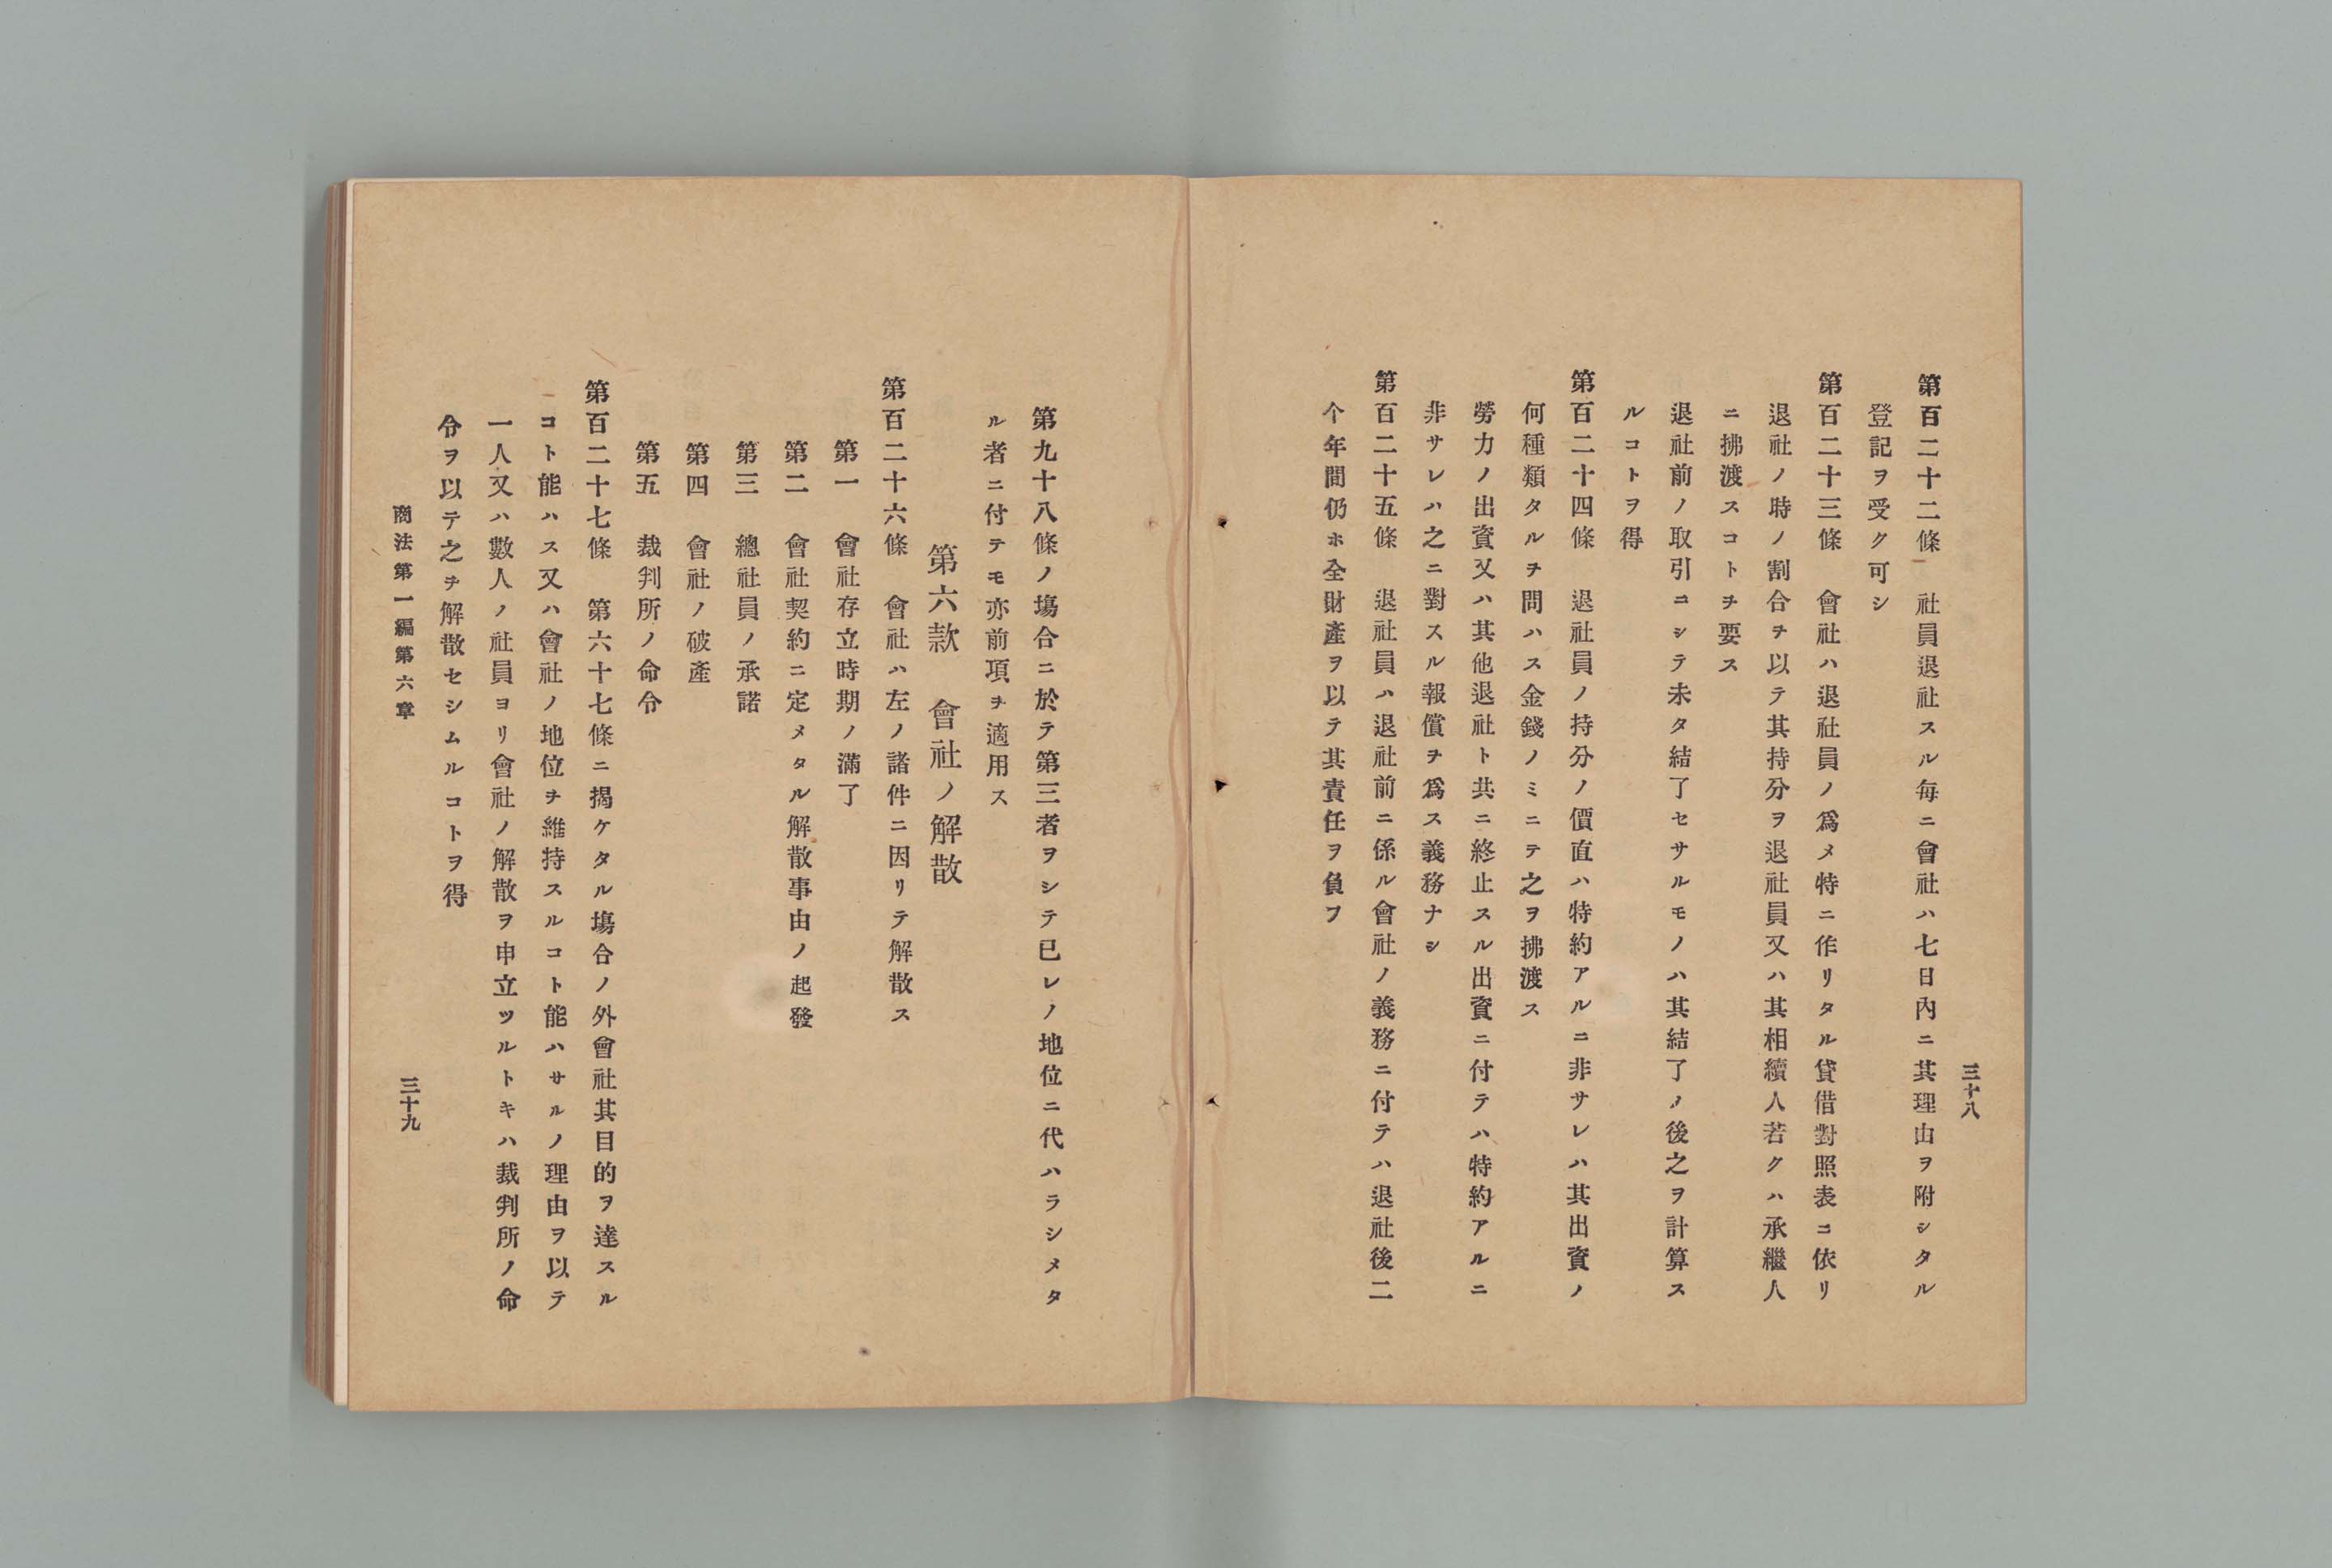 三十八
第百二十二條　社員退社スル毎ニ會社ハ七日內ニ其理由ヲ附シタル
登記ヲ受ク可シ
第百二十三條　會社ハ退社員ノ爲メ特ニ作リタル貸借對照表ニ依リ
退社ノ時ノ割合ヲ以テ其持分ヲ退社員又ハ其相續人若クハ承繼人
ニ拂渡スコトヲ要ス
退社前ノ取引ニシテ未タ結了セサルモノハ其結了ノ後之ヲ計算ス
ルコトヲ得
第百二十四條　退社員ノ持分ノ價直ハ特約アルニ非サレハ其出資ノ
何種類タルヲ問ハス金錢ノミニテ之ヲ拂渡ス
勞力ノ出資又ハ其他退社ト共ニ終止スル出資ニ付テハ特約アルニ
非サレハ之ニ對スル報償ヲ爲ス義務ナシ
第百二十五條　退社員ハ退社前ニ係ル會社ノ義務ニ付テハ退社後二
个年間仍ホ全財產ヲ以テ其責任ヲ負フ
第九十八條ノ塲合ニ於テ第三者ヲシテ已レノ地位ニ代ハラシメタ
ル者ニ付テモ亦前項ヲ適用ス
第六款　會社ノ解散
第百二十六條　會社ハ左ノ諸件ニ因リテ解散ス
第一　會社存立時期ノ滿了
第二　會社契約ニ定メタル解散事由ノ起發
第三　總社員ノ承諾
第四　會社ノ破產
第五　裁判所ノ命令
第百二十七條　第六十七條ニ揭ケタル塲合ノ外會社其目的ヲ達スル
コト能ハス又ハ會社ノ地位ヲ維持スルコト能ハサルノ理由ヲ以テ
一人又ハ數人ノ社員ヨリ會社ノ解散ヲ申立ツルトキハ裁判所ノ命
令ヲ以テ之ヲ解散セシムルコトヲ得
商法第一編第六章
三十九